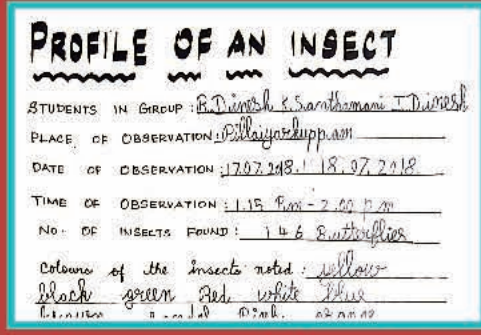 PROFILE OF AN INSECT
STUDENTS IN GROUP : R.Dinesh K.Santhamani T.Dinesh
PLACE OF OBSERVATION: Pillaiyarkuppam
DATE OF OBSERVATION : 17.07.218. 18.07.2018
TIME OF OBSERVATION : 1.15 P.m - 2.00 p.m
NO. OF INSECTS FOUND : 146 Butterflies
Colours of the insects noted : yellow
black green Red white blue
Pink orange